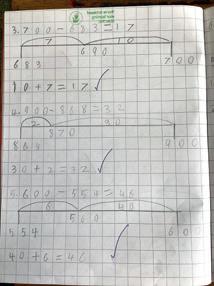 3. 700 - 683 = 17
7 10
690
683 700
10 + 7 = 17
4. 900 - 868 = 32
2 30
870
868 900
30 + 2 = 32
5. 600 - 554 = 46
6 40
560
554 600
40 + 6 = 46